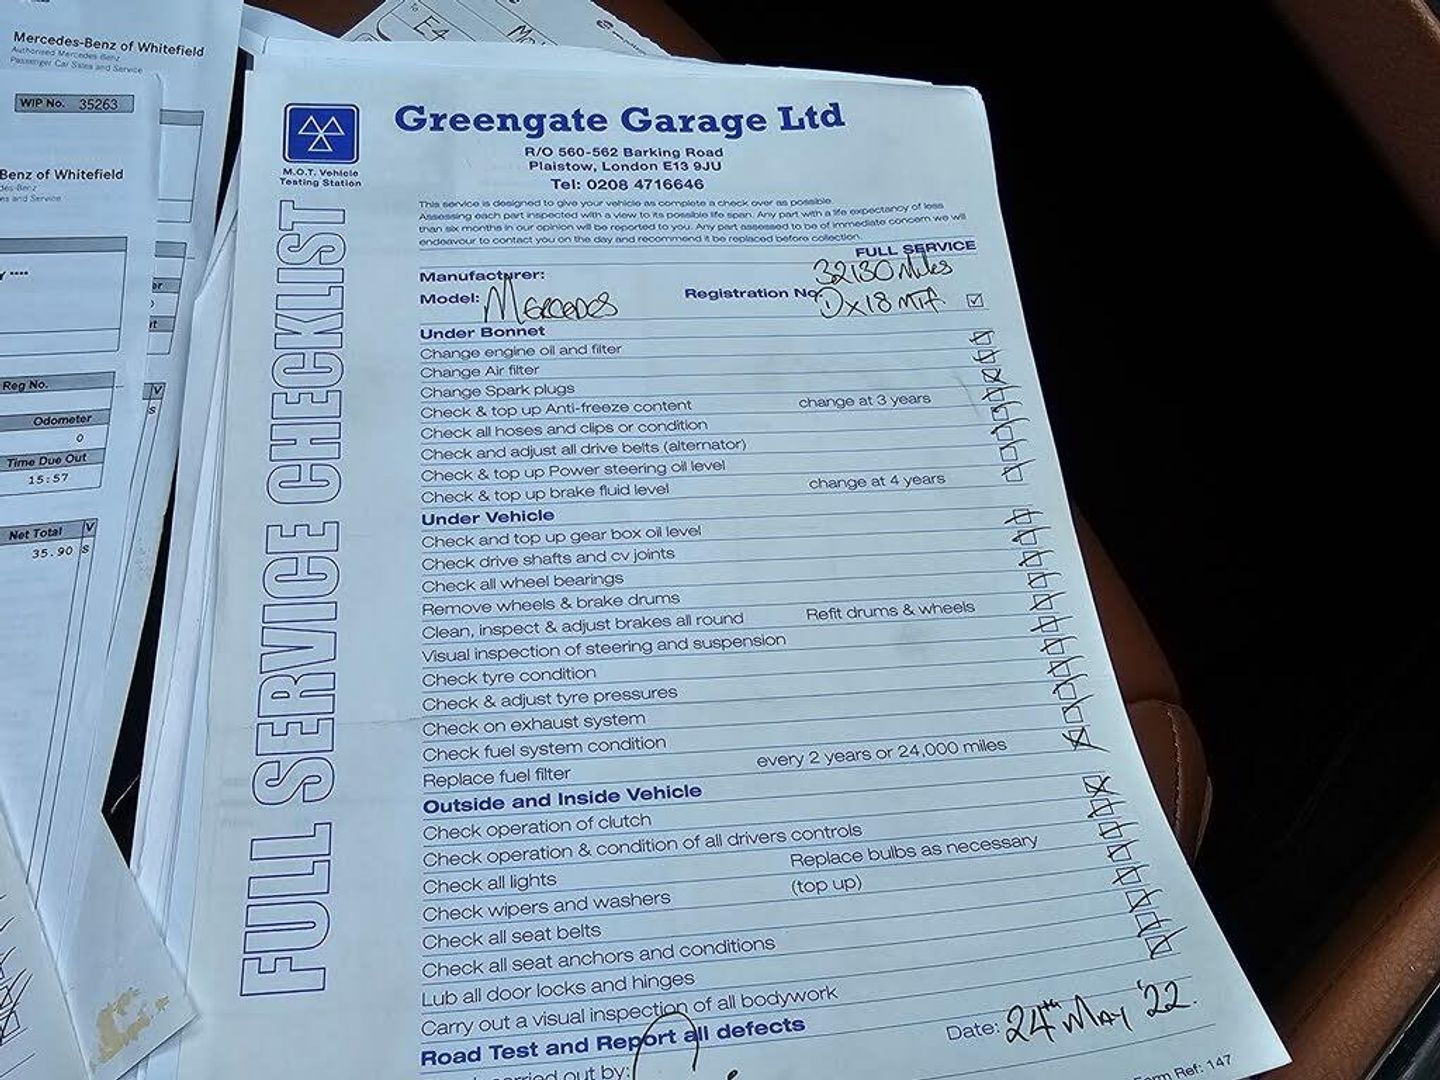 Mercedes-Benz of Whitefield
Authorised Mercedes-Benz
Passenger Car Sales and Service
WIP No. 35263
Benz of Whitefield
des-Benz
es and Service
Reg No.
Odometer
0
Time Due Out
15:57
Net Total V
35.90 S
E4
M.O.T. Vehicle
Testing Station
FULL SERVICE CHECKLIST
Greengate Garage Ltd
R/O 560-562 Barking Road
Plaistow, London E13 9JU
Tel: 0208 4716646
This service is designed to give your vehicle as complete a check over as possible.
Assessing each part inspected with a view to its possible life span. Any part with a life expectancy of less
than six months in our opinion will be reported to you. Any part assessed to be of immediate concern we will
endeavour to contact you on the day and recommend it be replaced before collection.
FULL SERVICE
Manufacturer: 32130 Miles
Model: Mercedes Registration No.
Under Bonnet
Change engine oil and filter
Change Air filter
Change Spark plugs
Check & top up Anti-freeze content change at 3 years
Check all hoses and clips or condition
Check and adjust all drive belts (alternator)
Check & top up Power steering oil level
Check & top up brake fluid level change at 4 years
Under Vehicle
Check and top up gear box oil level
Check drive shafts and cv joints
Check all wheel bearings
Remove wheels & brake drums
Clean, inspect & adjust brakes all round Refit drums & wheels
Visual inspection of steering and suspension
Check tyre condition
Check & adjust tyre pressures
Check on exhaust system
Check fuel system condition
Replace fuel filter every 2 years or 24,000 miles
Outside and Inside Vehicle
Check operation of clutch
Check operation & condition of all drivers controls
Check all lights Replace bulbs as necessary
Check wipers and washers (top up)
Check all seat belts
Check all seat anchors and conditions
Lub all door locks and hinges
Carry out a visual inspection of all bodywork
Road Test and Report all defects Date: 24th May '22.
carried out by:
Form Ref: 147